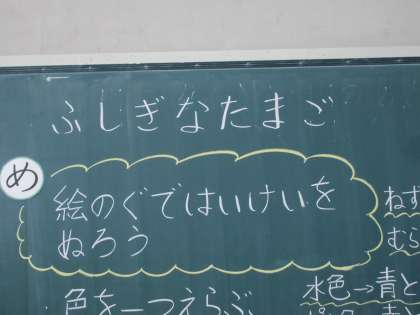 ふしぎなたまご
め
絵のぐではいけいを
ぬろう
色を一つえらぶ
ねず
むら
水色→青と